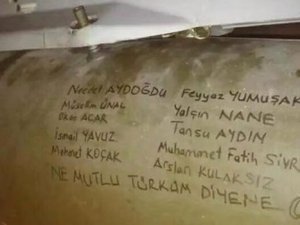 Necdet AYDOĞDU
Müslüm ÜNAL
Okan ACAR
İsmail YAVUZ
Mehmet KOÇAK
Feyyaz YUMUŞAK
Yalçın NANE
Tansu AYDIN
Muhammet Fatih SİVR
Arslan KULAKSIZ
NE MUTLU TÜRKÜM DİYENE